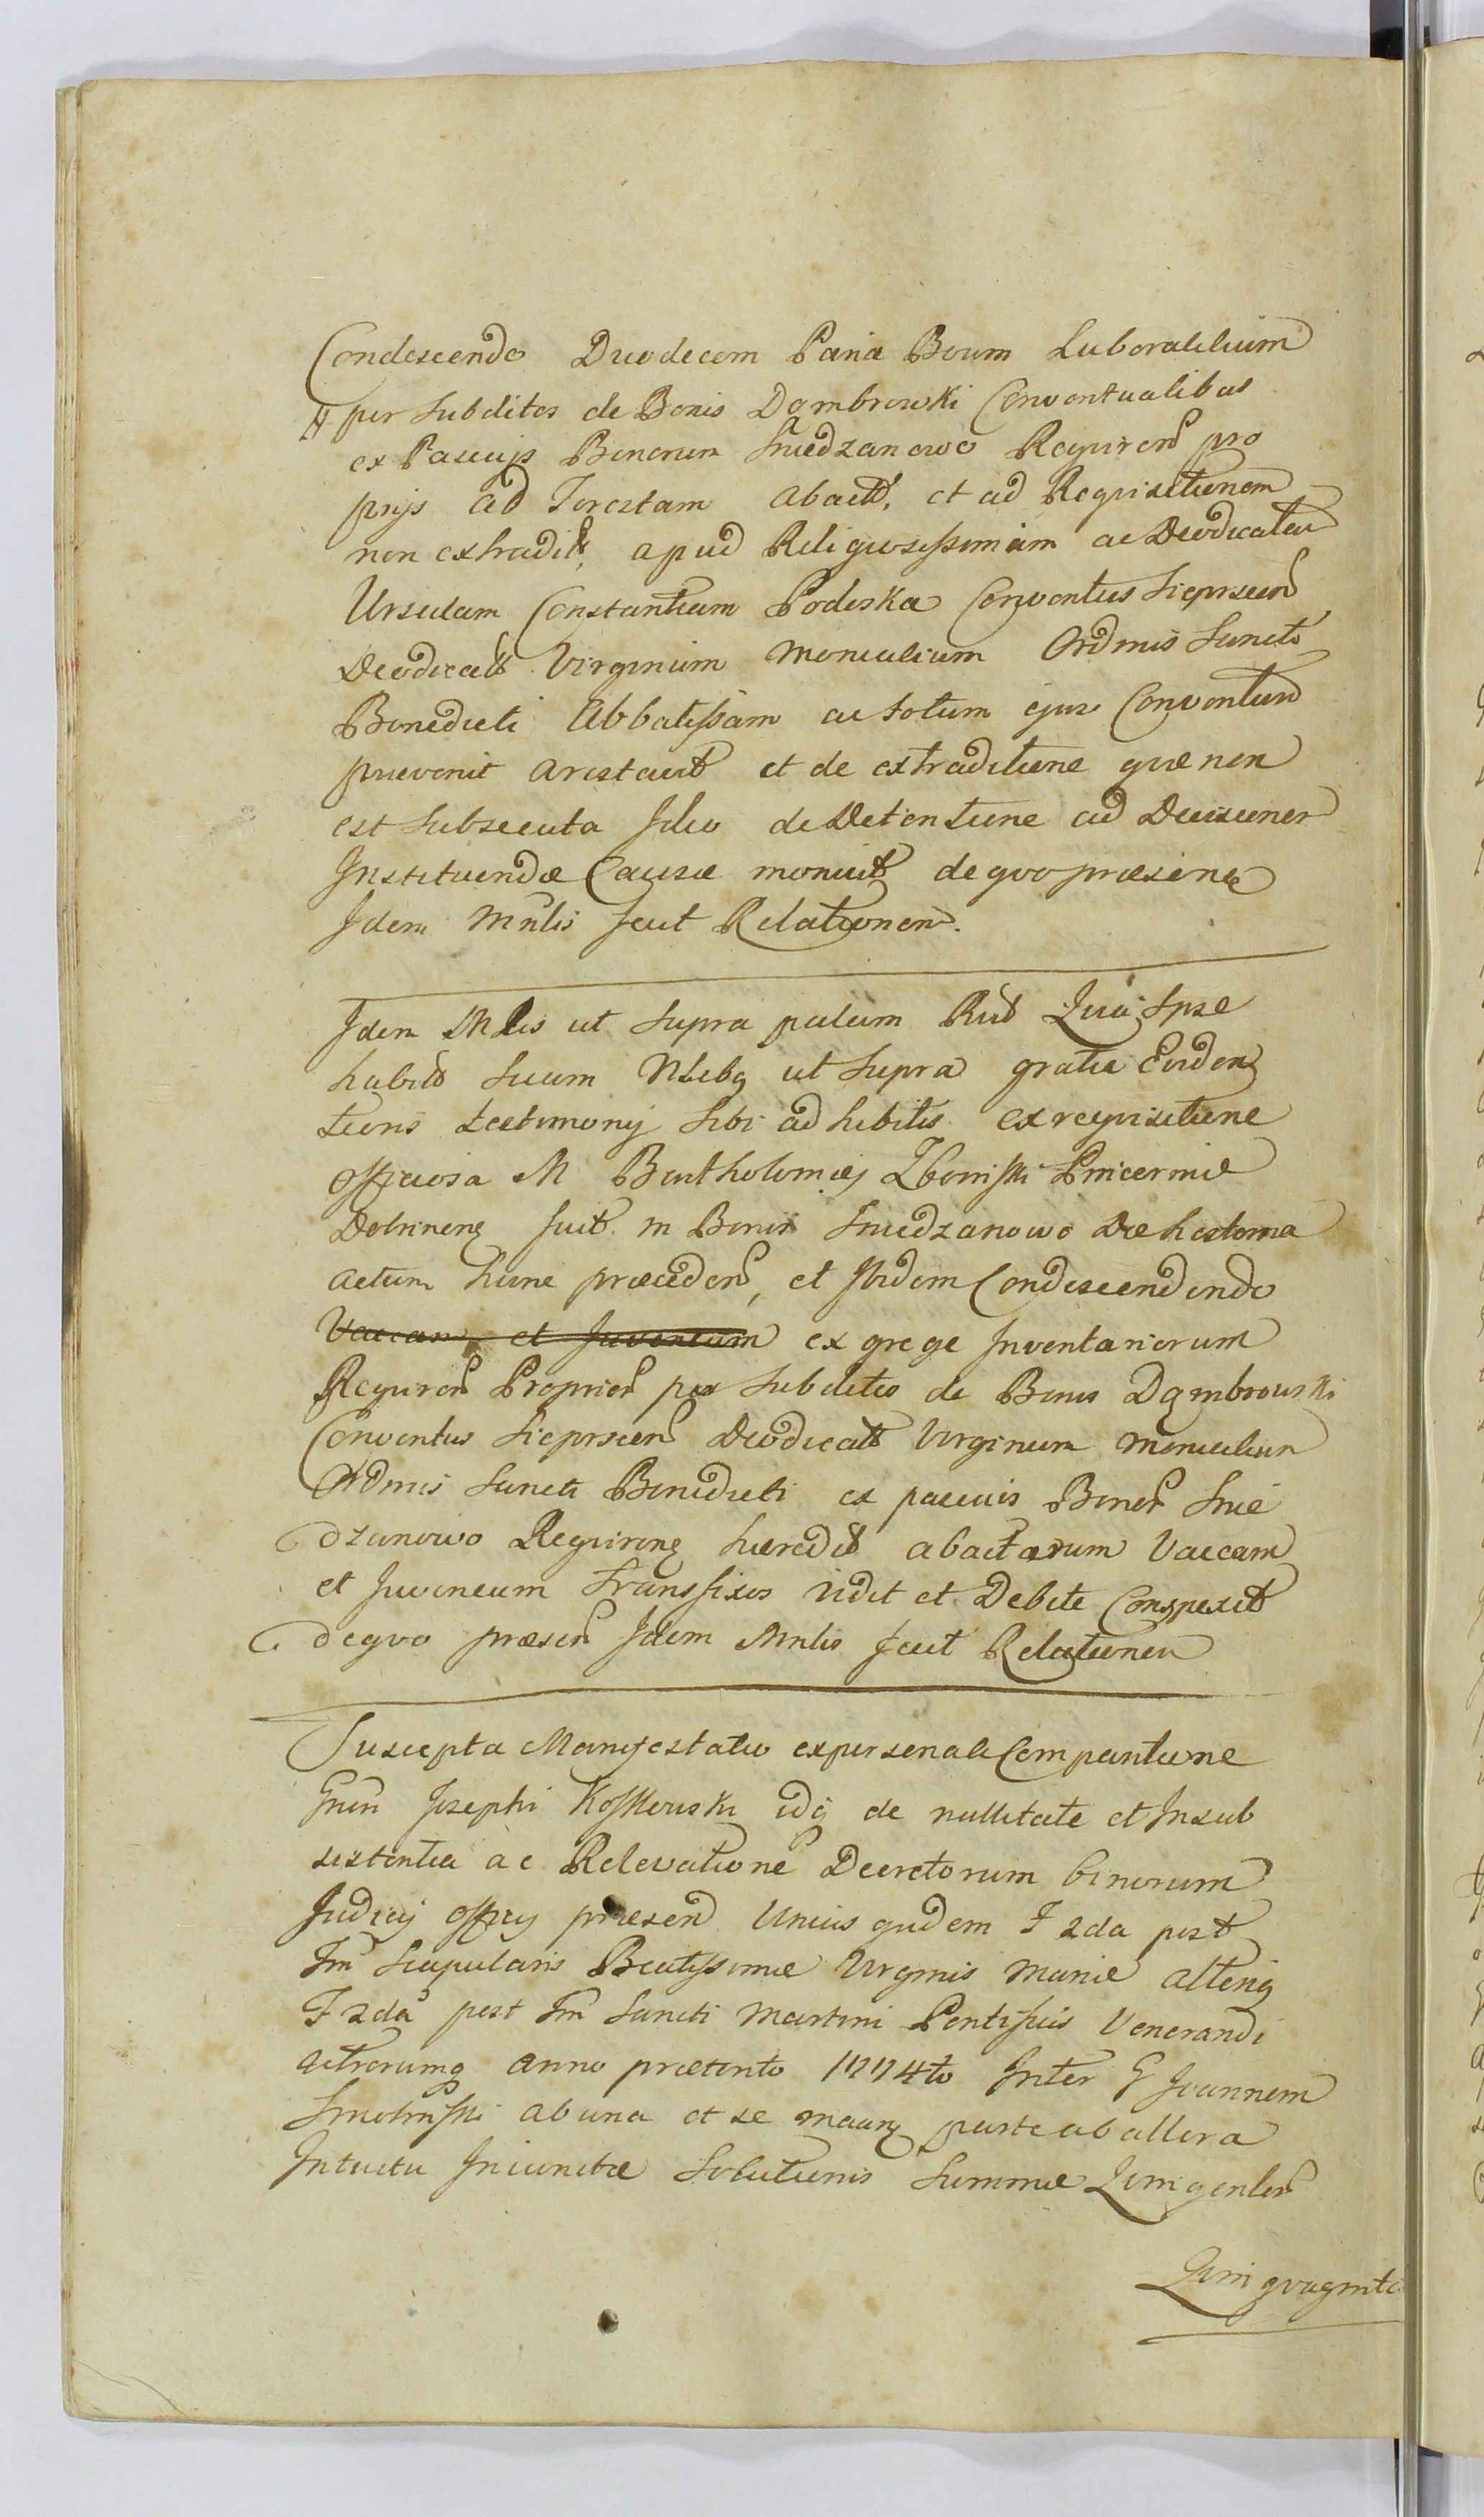 Condescendo Duodecem Paria Boum Laboralilium
# per Subditos de Bonis Dambrowski Conventualibus
ex Pascujs Bonorum Sniedzanowo Requiren pro
prijs ad Forestam abactt, et ad Requisitionem
non extradit, apud Religiosissimam ac Deodicatam
Ursulam Constantiam Podoska Conventus Sieprscen
Deodicatt Virginum Monialium Ordinis Sancti
Benedicti Abbatissam ac totum ejus Conventum
praevenit arestavit et de extraditione quae non
est Subsecuta Ideo de Detentione ad Decisionem
Instituendae Causae monuit de quo praesens
Idem Mnlis fecit Relationem.
Idem Mlis ut Supra palam Rlt Quia Ipse
habito Secum Nlibq ut Supra gratia Eviden
tioris testimonij Sibi ad hibitis ex requisitione
officiosa M Bartholomaej Zboinski Pincernae
Dobrinen fuit in Bonis Sniedzanowo Die hesterna
actum hunc praeceden, et Ibidem Condescendendo
Vaccam et Juvencum ex grege Inventariorum
Requiren Proprior per Subditos de Bonis Dambrowski
Conventus Sieprscen Deodicatt Virginum Monialium
Ordinis Sancti Benedicti ex pascuis Bonor Snie
dzanowo Requirens haeredit abactarum Vaccam
et Juvencum Transfixos vidit et Debite Conspexit
de quo praesen Idem Mnlis fecit Relationem
Suscepta Manifestatio ex personali Comparitione
Gnen Josephi Koskowski idq de nullitate et Insub
sistentia ac Relevatione Decretorum binorum
Judicij officij praesen Unius quidem F 2da post
Fm Scapularis Beatissimae Virginis Mariae alteriq
F 2da post Fm Sancti Martini Pontificis Venerandi
actorumq anno praetento 1774to Inter G Joannem
ab una et se maanq parte ab altera
Intuitu Injunctae Solutionis Summae Quingentor
Quinquaginta